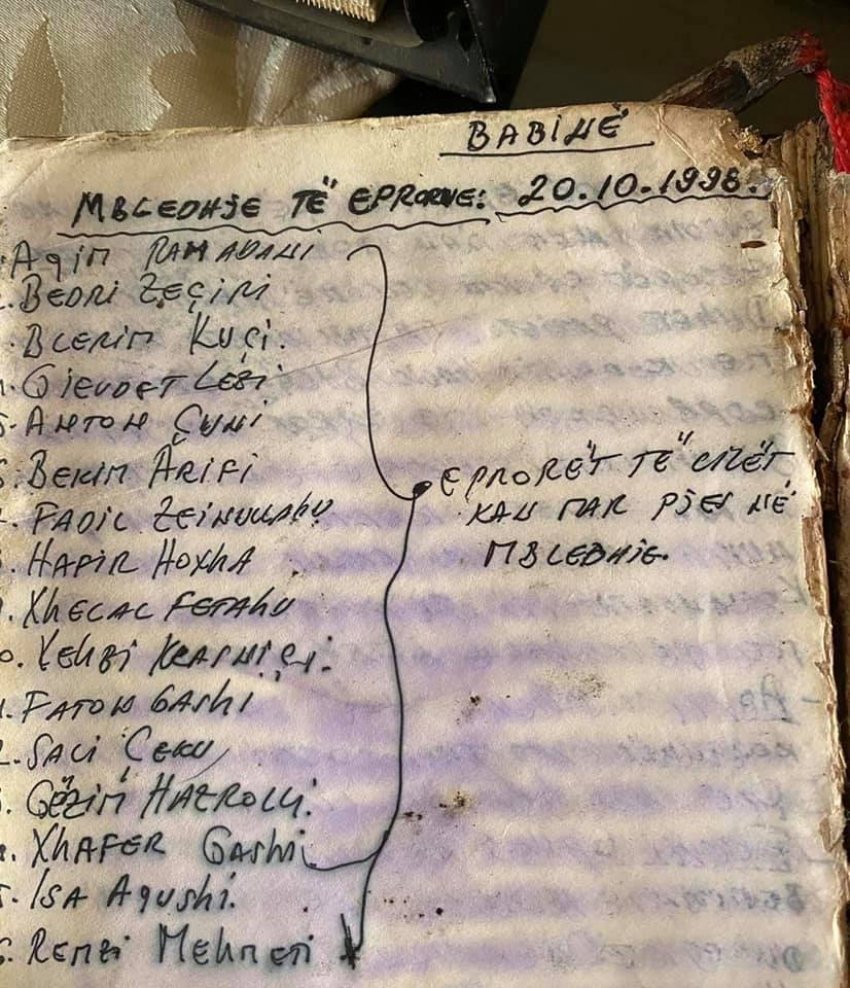 BABINË
MBLEDHJE TË EPRORVE: 20.10.1998.
Agim RAMADANI
BEDRI ZEÇIRI
BLERIM KUÇI.
GJEVDET LEZI
5. ANTON ÇUNI
BEKIM ARIFI
EPRORËT TË CILËT
FADIL ZEINULLAHU
KAN MAR PJES NË
HAPIR HOXHA
MBLEDHJE.
XHELAL FETAHU
0. KRASNIÇI.
FATON GASHI
SALI ÇEKU
GËZIM HAZROLLI.
XHAFER GASHI
ISA AGUSHI.
REMZI MEHMETI